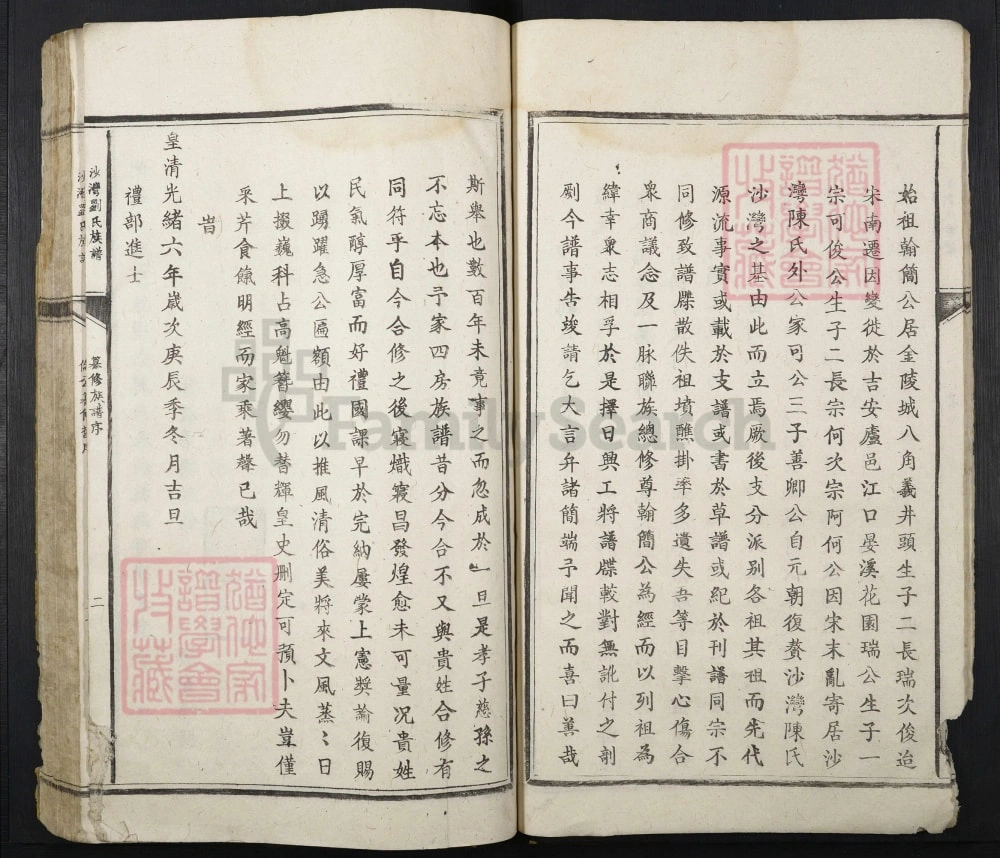 始祖翰簡公居金陵城八角義井頭生子二長瑞次俊迨
宋南遷因變徙於吉安廬邑江口晏溪花園瑞公生子一
宗可俊公生子二長宗何次宗阿何公因宋末亂寄居沙
灣陳氏外公家可公三子善卿公自元朝復贅沙灣陳氏
沙灣之基由此而立焉厥後支分派別各祖其祖而先代
源流事實或載於支譜或書於草譜或紀於刊譜同宗不
同修致譜牒散佚祖墳醮掛率多遺失吾等目擊心傷合
衆商議念及一脉聯族總修尊翰簡公為經而以列祖為
緯幸衆志相孚於是擇日興工將譜牒較對無訛付之剞
劂今譜事告竣請乞大言弁諸簡端予聞之而喜曰善哉
斯舉也數百年未竟事之而忽成於一旦是孝子慈孫之
不忘本也予家四房族譜昔分今合不又與貴姓合修有
同符乎自今合修之後寖熾寖昌發煌愈未可量況貴姓
民氣醇厚富而好禮國課早於完納屢蒙上憲獎諭復賜
以踴躍急公匾額由此以推風清俗美將來文風蒸〻日
上掇巍科占高魁簪纓勿替輝皇史刪定可預卜夫豈僅
采芹食餼明經而家乘著馨已哉
旹
皇清光緒六年嵗次庚辰季冬月吉旦
禮部進士
沙灣劉氏族譜
纂修族譜序
二
FamilySearch